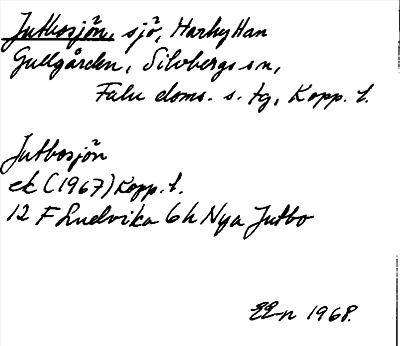 Jutbosjön, sjö, Harhyttan
Gullgården, Silvbergs sn,
Falu doms. s. tg, Kopp. l.
Jutbosjön
ek (1967) Kopp. l.
12 F Ludvika 6 h Nya Jutbo
1968.